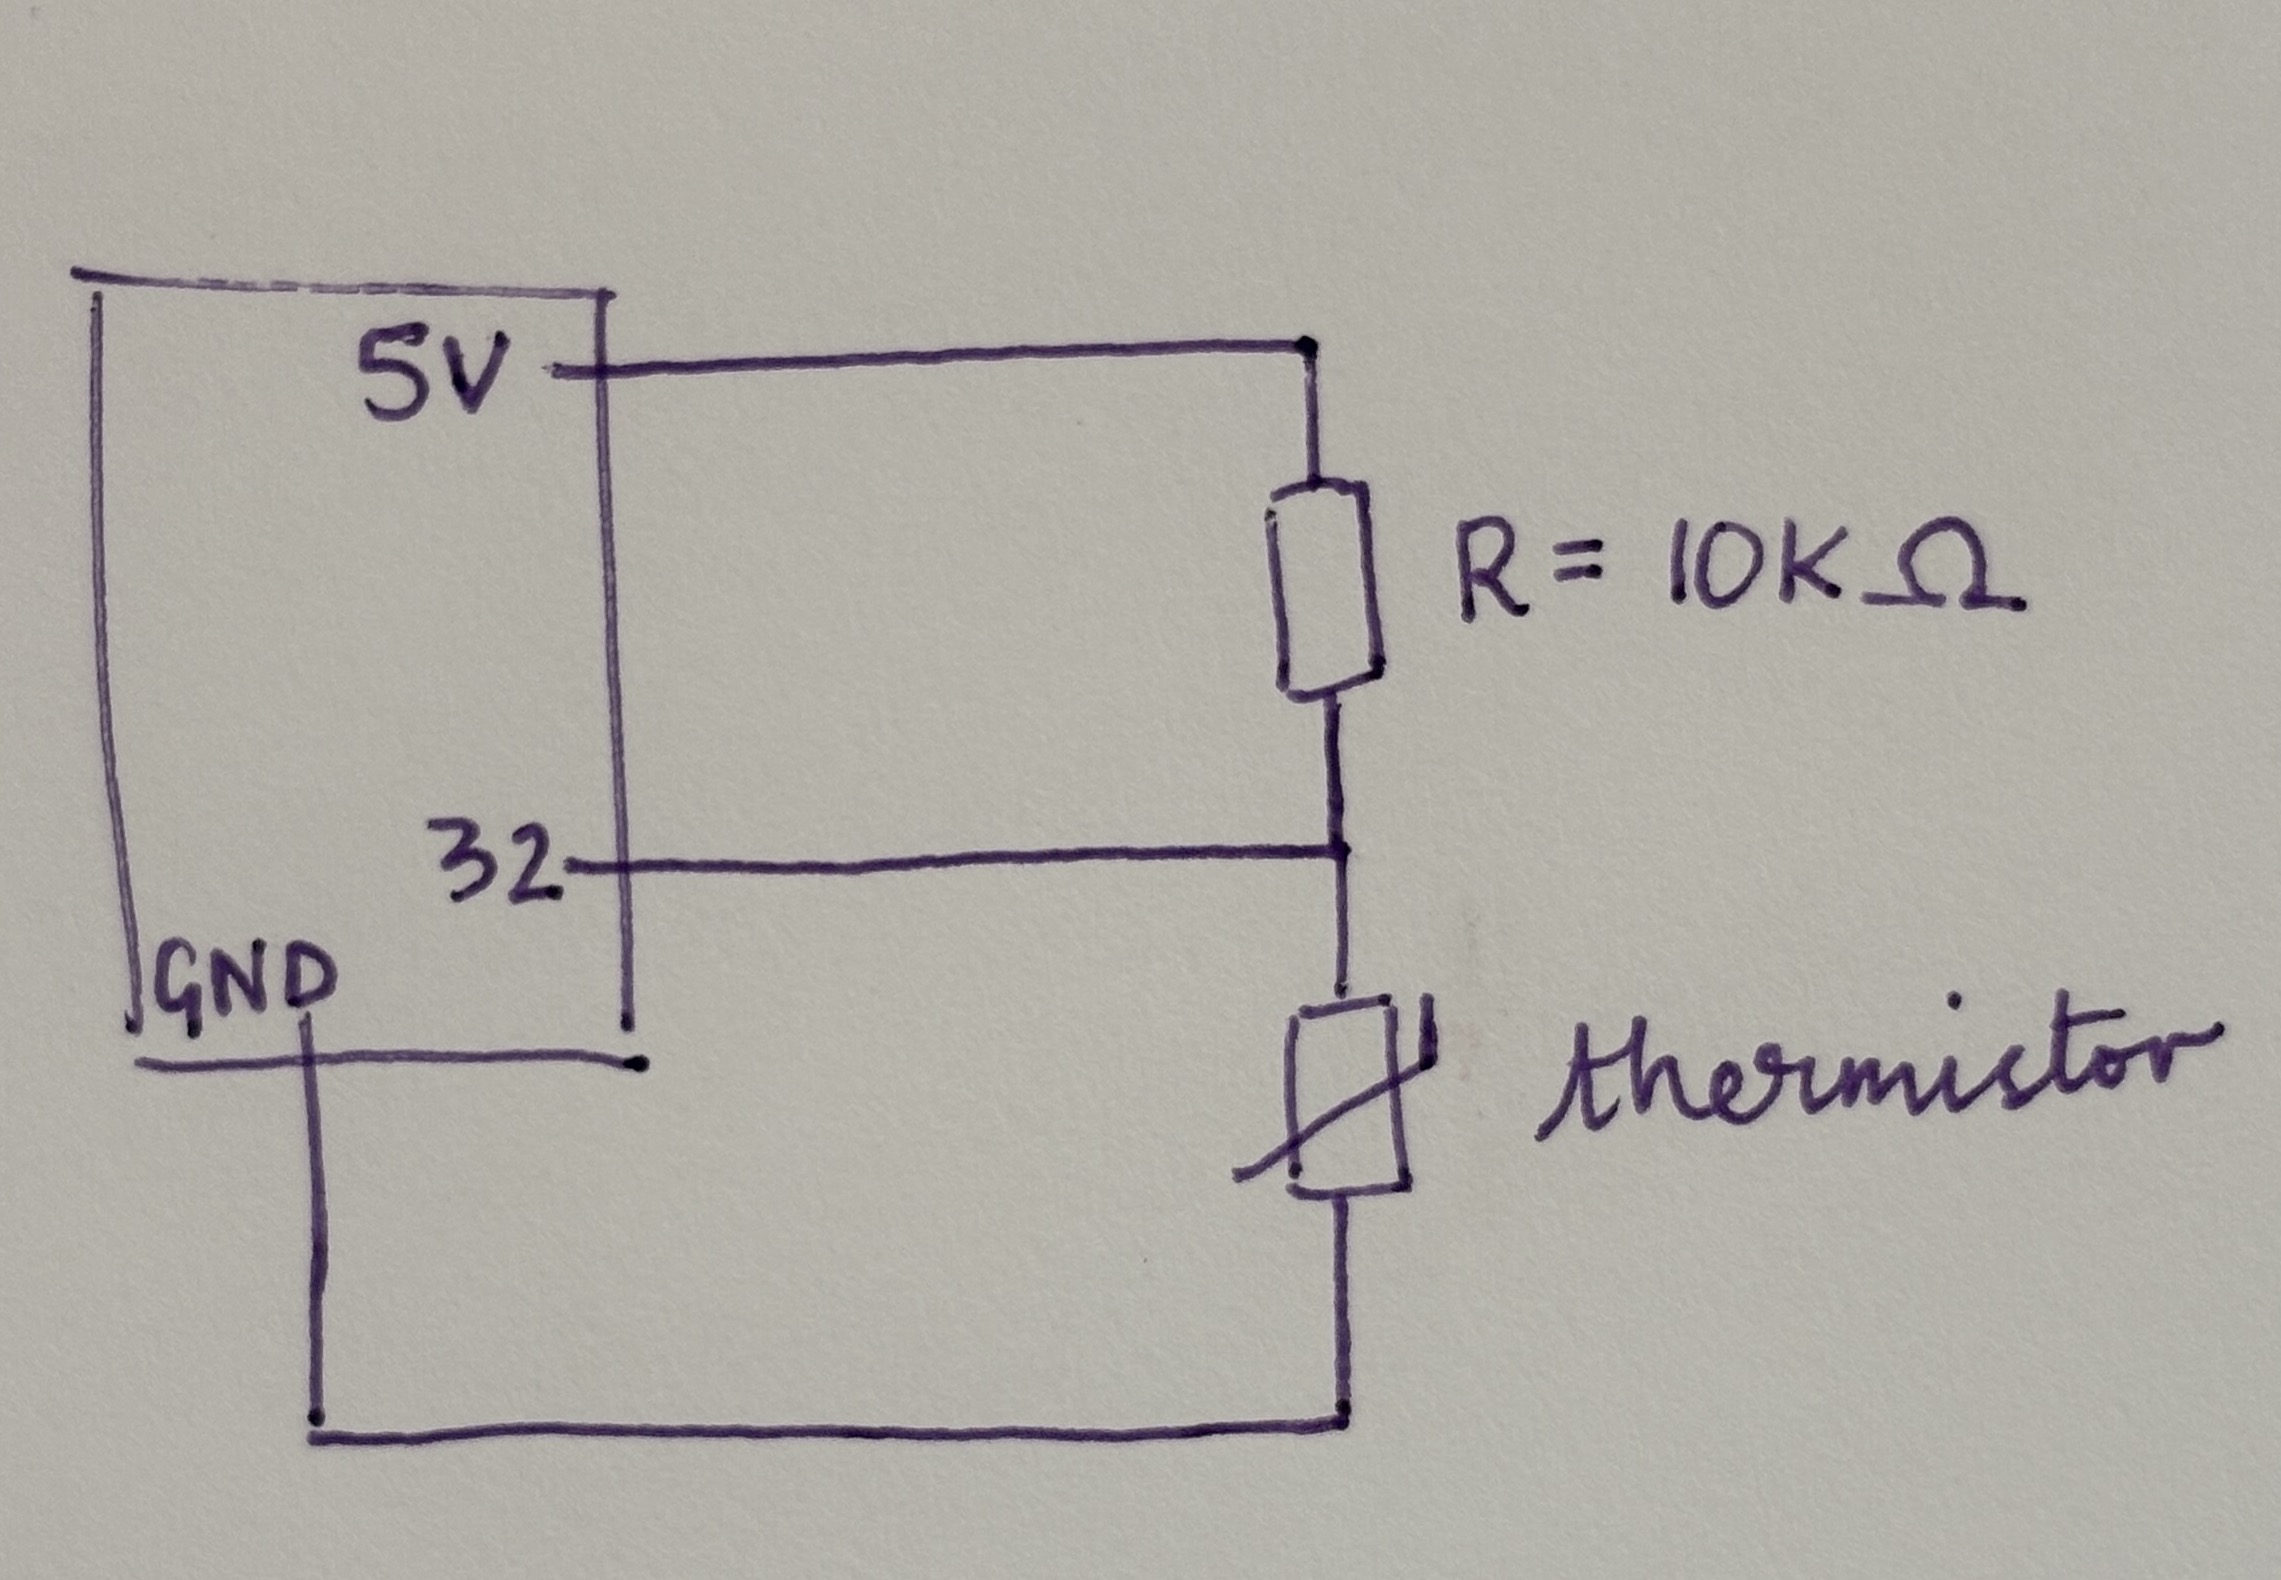 5V
R = 10K Ω
32
GND
thermistor